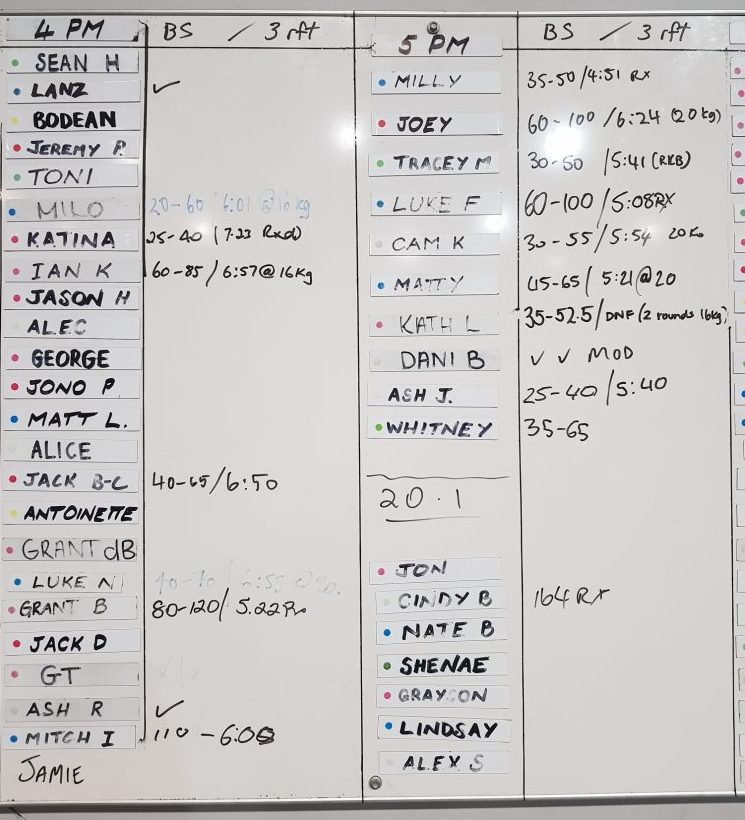 4 PM BS / 3 rft
SEAN H
LANZ ✓
BODEAN
JEREMY P.
TONI
MILO 20-60 6:01 @ 16kg
KATINA 25-40 / 7:23 Rxd
IAN K 60-85 / 6:57 @ 16Kg
JASON H
ALEC
GEORGE
JONO P
MATT L.
ALICE
JACK B-C 40-65/6:50
ANTOINETTE
GRANT dB
LUKE N 40-70 / 6:55 @ 20.
GRANT B 80-120/ 5.22 Rx
JACK D
GT ✓✓
ASH R ✓
MITCH I 110 - 6:06
JAMIE
5 PM BS / 3 rft
MILLY 35-50/4:51 Rx
JOEY 60-100 /6:24 (20kg)
TRACEY M 30-50 /5:41 (RKB)
LUKE F 60-100/5:08RX
CAM K 30-55/5:54 20Kg
MATTY 45-65/ 5:21@20
KATH L 35-52.5/DNF (2 rounds 16kg)
DANI B ✓ ✓ MOD
ASH J. 25-40/5:40
WHITNEY 35-65
20.1
JON
CINDY B 164 Rx
NATE B
SHENAE
GRAYSON
LINDSAY
ALEX S